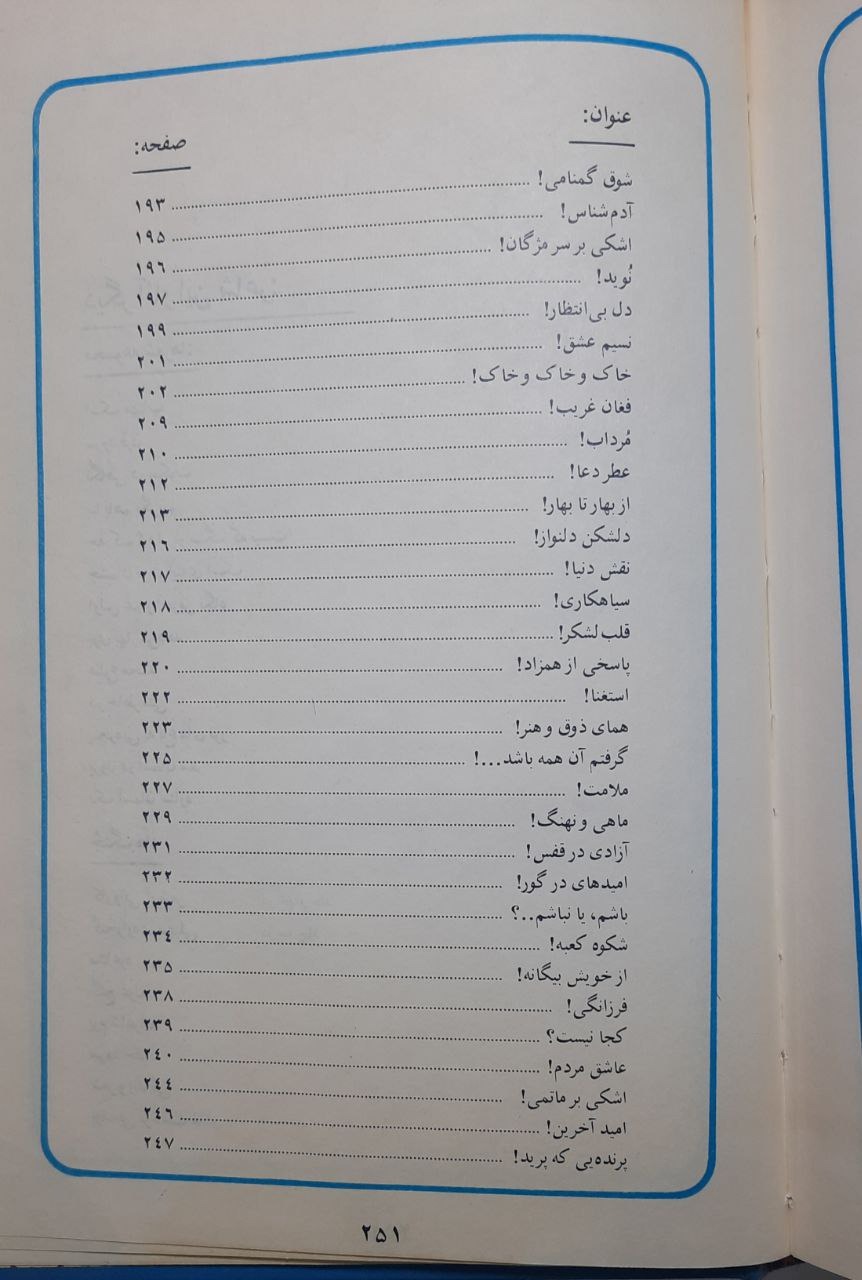 عنوان:
صفحه:
شوق گمنامی! ۱۹۳
آدم‌شناس! ۱۹۵
اشکی بر سر مژگان! ۱۹۶
نُوید! ۱۹۷
دل بی‌انتظار! ۱۹۹
نسیم عشق! ۲۰۱
خاک و خاک و خاک! ۲۰۲
فغان غریب! ۲۰۹
مُرداب! ۲۱۰
عطر دعا! ۲۱۲
از بهار تا بهار! ۲۱۳
دلشکن دلنواز! ۲۱۶
نقش دنیا! ۲۱۷
سیاهکاری! ۲۱۸
قلب لشکر! ۲۱۹
پاسخی از همزاد! ۲۲۰
استغنا! ۲۲۲
همای ذوق و هنر! ۲۲۳
گرفتم آن همه باشد...! ۲۲۵
ملامت! ۲۲۷
ماهی و نهنگ! ۲۲۹
آزادی در قفس! ۲۳۱
امیدهای در گور! ۲۳۲
باشم، یا نباشم..؟ ۲۳۳
شکوه کعبه! ۲۳٤
از خویش بیگانه! ۲۳۵
فرزانگی! ۲۳۸
کجا نیست؟ ۲۳۹
عاشق مردم! ۲٤۰
اشکی بر ماتمی! ۲٤٤
امید آخرین! ۲٤٦
پرنده‌یی که پرید! ۲٤۷
۲۵۱